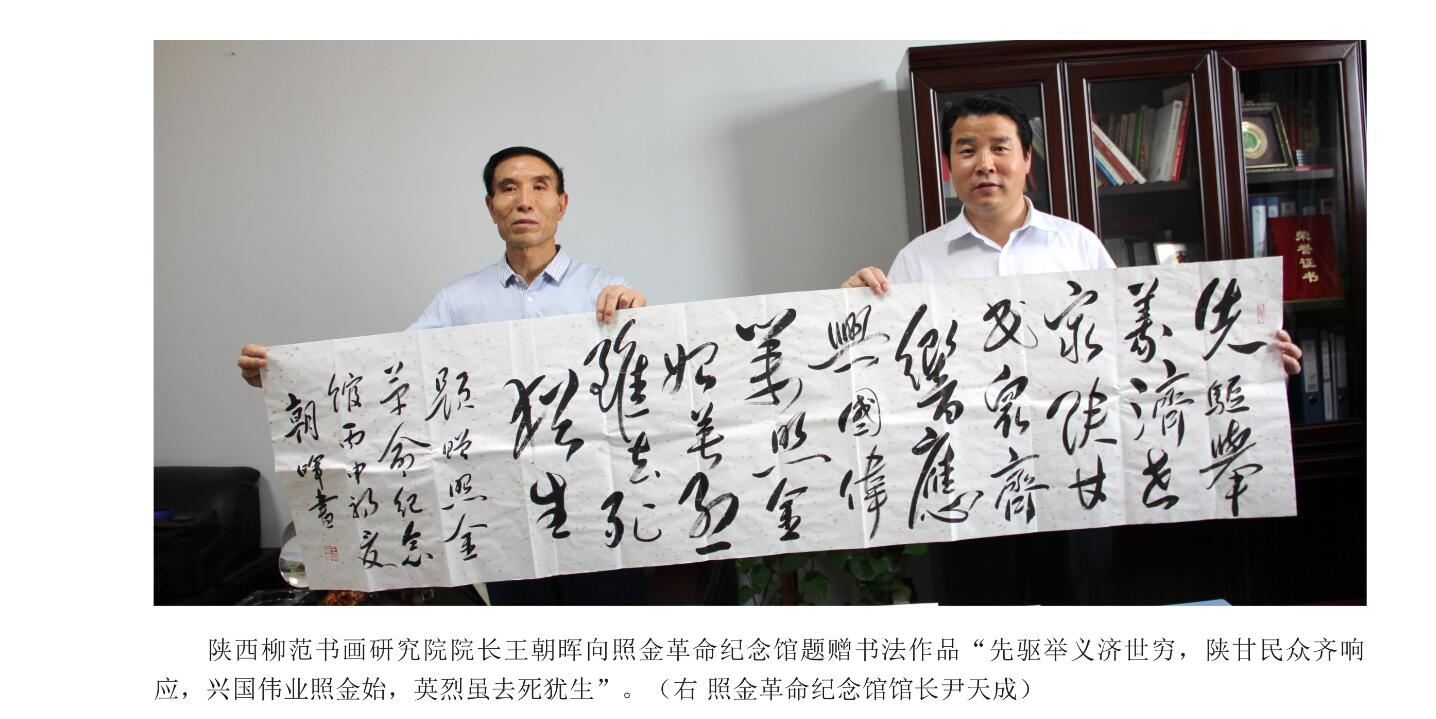 先驅舉
義濟世
窮陕甘
民衆齊
響應
興國偉
業照金
始英烈
雖去死
犹生
題贈照金
革命纪念
馆丙申初夏
朝晖書
荣誉证书
陕西柳范书画研究院院长王朝晖向照金革命纪念馆题赠书法作品“先驱举义济世穷，陕甘民众齐响
应，兴国伟业照金始，英烈虽去死犹生”。（右 照金革命纪念馆馆长尹天成）